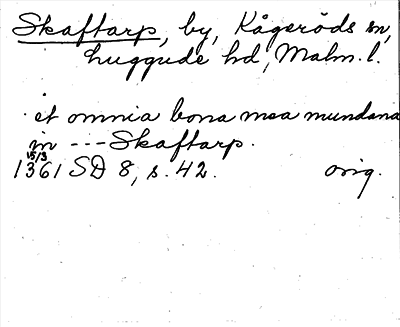 Skaftarp, by, Kågeröds sn,
Luggude hd, Malm. l.
et omnia bona mea mundana
in --- Skaftarp.
15/3
1361 SD 8, s. 42. orig.